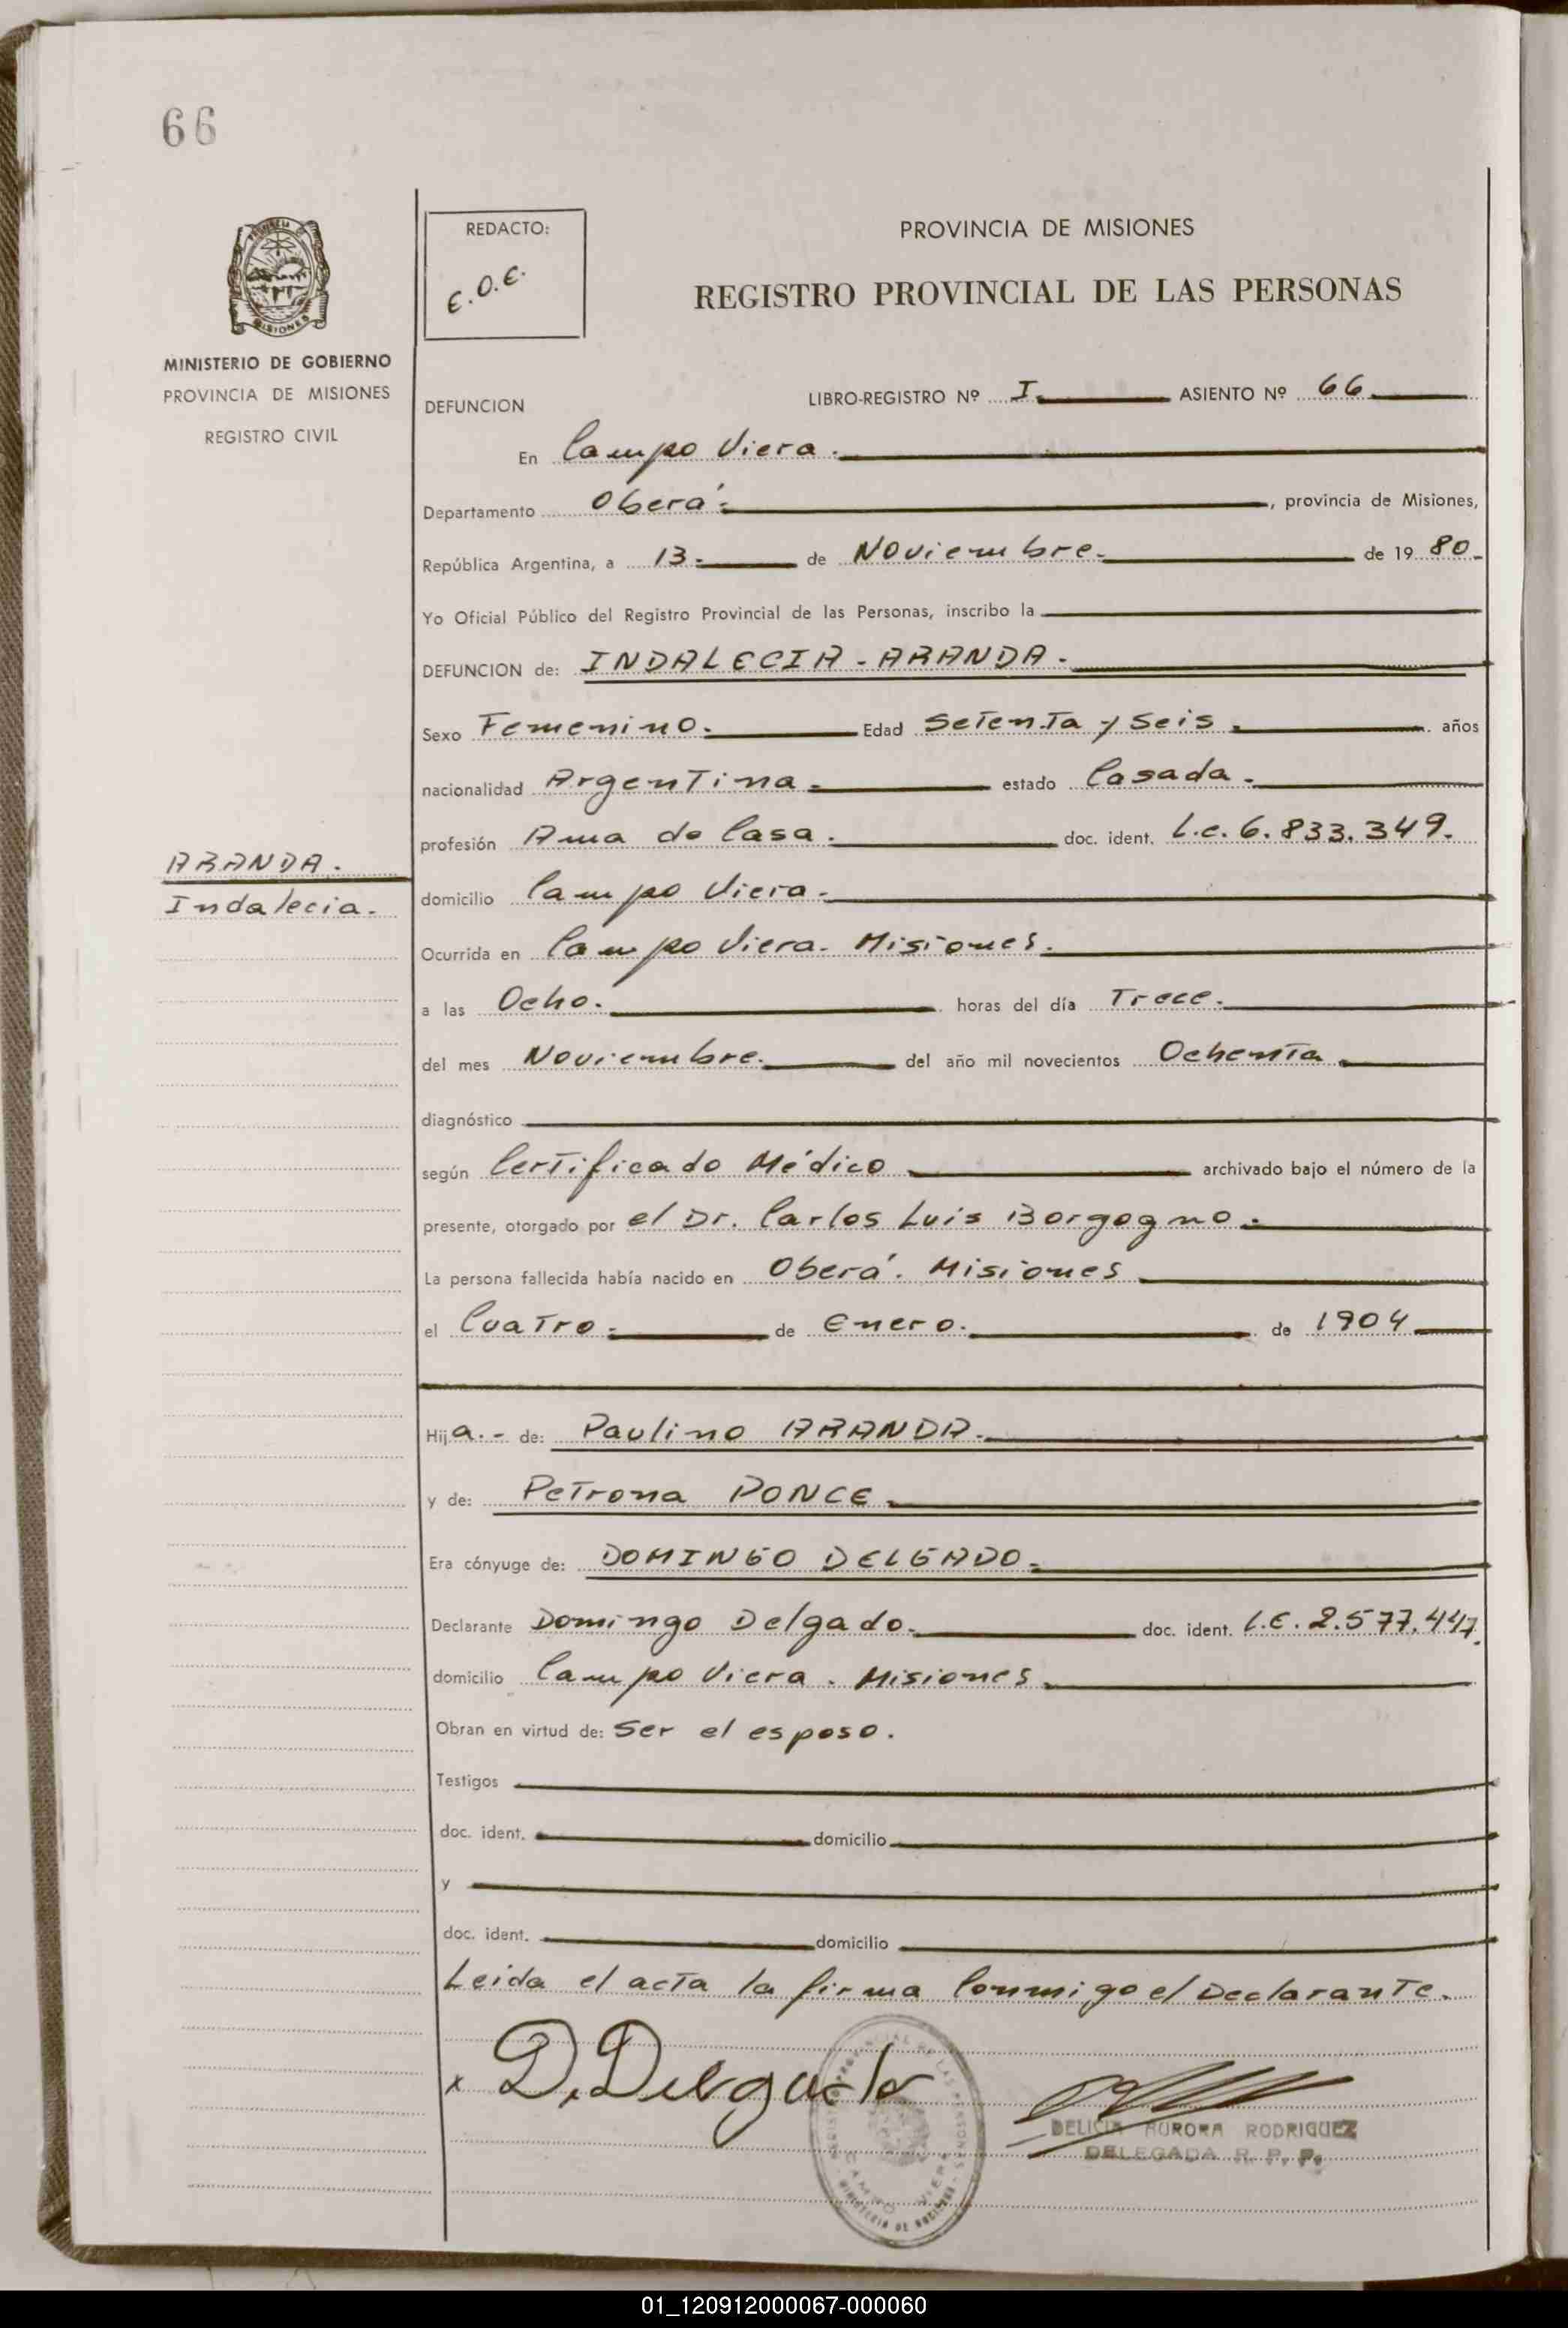 66
REDACTO:
E.O.E.
PROVINCIA DE MISIONES
REGISTRO PROVINCIAL DE LAS PERSONAS
MINISTERIO DE GOBIERNO
PROVINCIA DE MISIONES
REGISTRO CIVIL
DEFUNCION LIBRO-REGISTRO Nº I ASIENTO Nº 66
En Campo Viera.
Departamento Oberá.-, provincia de Misiones,
República Argentina, a 13.- de Noviembre.- de 1980.-
Yo Oficial Público del Registro Provincial de las Personas, inscribo la
DEFUNCION de: INDALECIA - ARANDA.-
Sexo Femenino.- Edad Setenta y Seis.- años
nacionalidad Argentina.- estado Casada.-
profesión Ama de Casa.- doc. ident. L.C. 6.833.349.
ARANDA.
Indalecia.
domicilio Campo Viera.-
Ocurrida en Campo Viera. Misiones.
a las Ocho.- horas del día Trece.-
del mes Noviembre.- del año mil novecientos Ochenta.
diagnóstico
según Certificado Médico archivado bajo el número de la
presente, otorgado por el Dr. Carlos Luis Borgogno.-
La persona fallecida había nacido en Oberá. Misiones
el Cuatro.- de Enero.- de 1904
Hija.- de: Paulino ARANDA.-
y de: Petrona PONCE.
Era cónyuge de: DOMINGO DELGADO.-
Declarante Domingo Delgado.- doc. ident. L.E. 2.577.447.
domicilio Campo Viera. Misiones.
Obran en virtud de: Ser el esposo.
Testigos
doc. ident. domicilio
y
doc. ident. domicilio
Leida el acta la firma Conmigo el Declarante.
x D. Delgado
DELICIA AURORA RODRIGUEZ
DELEGADA R. P. P.
01_120912000067-000060